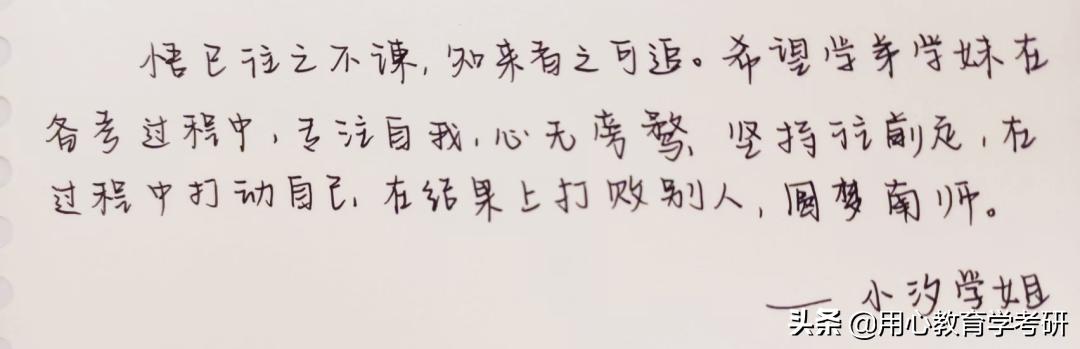 悟已往之不谏,知来者之可追。希望学弟学妹在
备考过程中,专注自我,心无旁骛,坚持往前走,在
过程中打动自己,在结果上打败别人,圆梦南师。
—— 小汐学姐
头条 @用心教育学考研